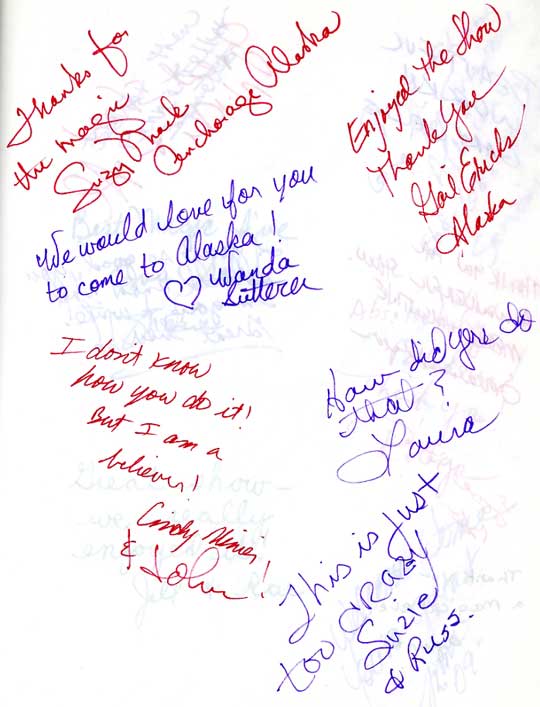 Thanks for
the magic
Suzy
Anchorage Alaska
Enjoyed the Show
Thank You
Gail
Alaska
We would love for you
to come to Alaska!
♡ Wanda
Sutterer
I don't know
how you do it!
But I am a
believer!
Cindy
& John!
How did you do
that?
Laura
This is just
too CRAZY
Suzie
& Russ.